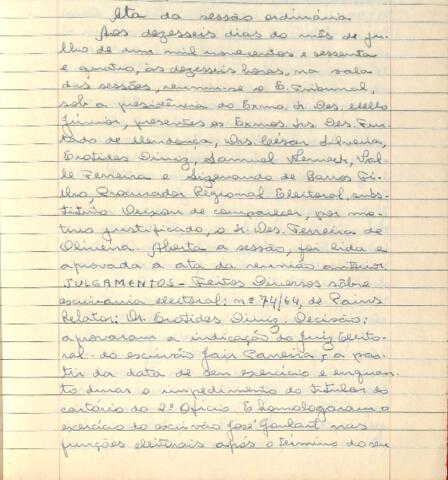 Ata da sessão ordinária
Aos dezesseis dias do mês de ju-
lho de um mil novecentos e sessenta
e quatro, às dezesseis horas, na sala
das sessões, reuniu-se o E. Tribunal,
sob a presidência do Exmo. Sr. Des. Mello
Júnior, presentes os Exmos. Srs. Des. Fur-
tado de Mendonça, Drs. César Silveira,
Erotides Diniz, Samuel Werneck, Val-
le Ferreira e Sizenando de Barros Fi-
lho, Procurador Regional Eleitoral, subs-
tituto. Deixou de comparecer, por mo-
tivo justificado, o Sr. Des. Ferreira de
Oliveira. Aberta a sessão, foi lida e
aprovada a ata da reunião anterior.
JULGAMENTOS - Feitos Diversos sôbre
escrivania eleitoral: nº 74/64, de Pains
Relator: Dr. Erotides Diniz. Decisão:
aprovaram a indicação do Juiz Eleito-
ral do escrivão Jair a par-
tir da data de seu exercício e enquan-
to durar o impedimento do titular do
cartório do 2º Ofício. E homologaram o
exercício do escrivão José Goulart nas
funções eleitorais após o término do seu